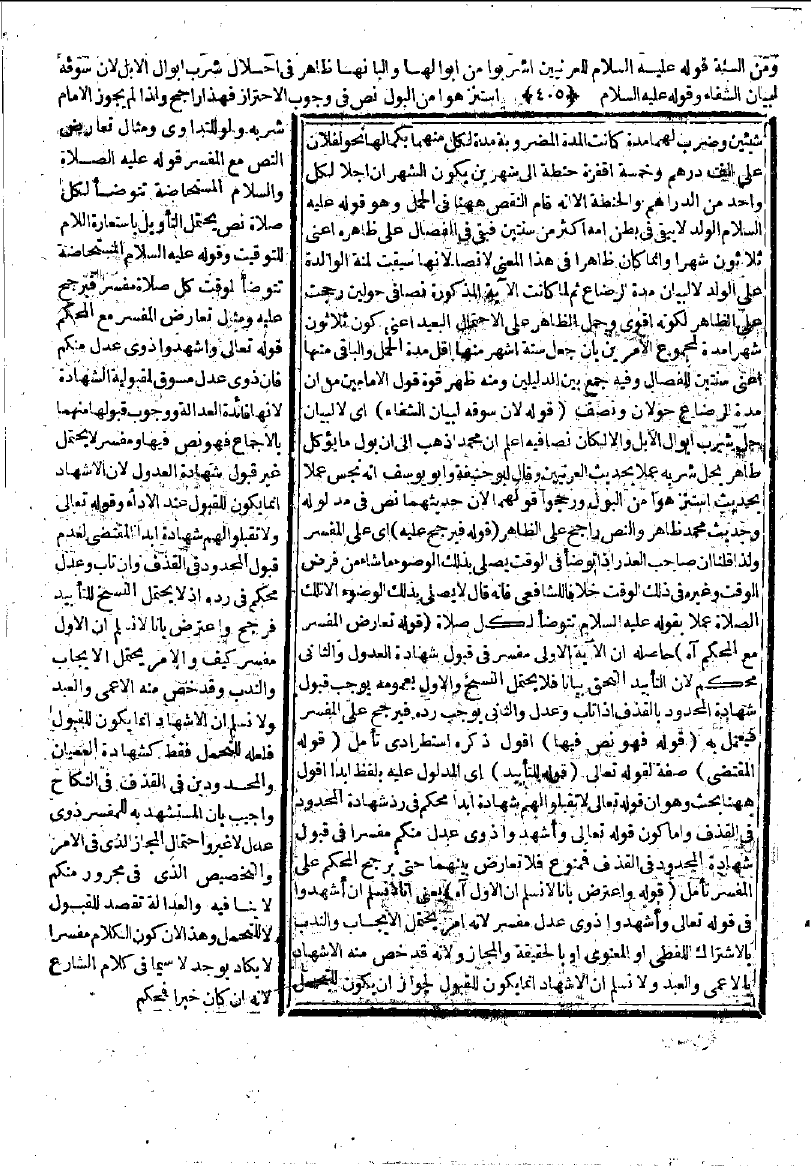 ومن السنة قوله عليه السلام للعرنيين اشربوا من ابوالها والبانها ظاهر فى احلال شرب ابوال الابل لان سوقه
لبيان الشفاء وقوله عليه السلام ﴿٤٠٥﴾ استنزهوا من البول نص فى وجوب الاحتراز فهذا راجح ولذا لم يجوز الامام
شربه ولو للتداوى ومثال تعارض
النص مع المفسر قوله عليه الصلاة
والسلام المستحاضة تتوضأ لكل
صلاة نص يحتمل التأويل باستعارة اللام
للتوقيت وقوله عليه السلام المستحاضة
تتوضأ لوقت كل صلاة مفسر فيرجح
عليه ومثل تعارض المفسر مع المحكم
قوله تعالى واشهدوا ذوى عدل منكم
فان ذوى عدل مسوق لمقبولية الشهادة
لانها فائدة العدالة ووجوب قبولها منهما
بالاجماع فهو نص فيها ومفسر لا يحتمل
غير قبول شهادة العدول لان الاشهاد
انما يكون للقبول عند الاداء وقوله تعالى
ولا تقبلوا لهم شهادة ابدا المقتضى لعدم
قبول المحدود فى القذف وان تاب وعدل
محكم فى رده اذ لا يحتمل النسخ للتأبيد
فرجح واعترض بانا لا نسلم ان الاول
مفسر كيف والامر يحتمل الايجاب
والندب وقد خص منه الاعمى والعبد
ولا نسلم ان الاشهاد انما يكون للقبول
فلعله للتحمل فقط كشهادة العميان
والمحدودين فى القذف فى النكاح
واجيب بان المستشهد به للمفسر ذوى
عدل لا غير واحتمال المجاز الذى فى الامر
والتخصيص الذى فى مجرور منكم
لا ينافيه والعدالة تقصد للقبول
لا للتحمل وهذا لان كون الكلام مفسرا
لا يكاد يوجد لا سيما فى كلام الشارع
لانه ان كان خبرا فمحكم
شيئين وضرب لهما مدة كانت المدة المضروبة مدة لكل منهما بكمالها نحو لفلان
على الف درهم وخمسة اقفزة حنطة الى شهرين يكون الشهران اجلا لكل
واحد من الدراهم والحنطة الا انه قام النقص ههنا فى الحمل وهو قوله عليه
السلام الولد لا يبقى فى بطن امه اكثر من سنتين فبقى فى الفصال على ظاهره اعنى
ثلاثون شهرا وانما كان ظاهرا فى هذا المعنى لا نصا لانها سيقت لمنة الوالدة
على الولد لا لبيان مدة الرضاع ثم لما كانت الآية المذكورة نصا فى حولين رجحت
على الظاهر لكونه اقوى وحمل الظاهر على الاحتمال البعيد اعنى كون ثلاثون
شهرا مدة لمجموع الامرين بان جعل ستة اشهر منها اقل مدة الحمل والباقى منها
اعنى سنتين للفصال وفيه جمع بين الدليلين ومنه ظهر قوة قول الامامين من ان
مدة الرضاع حولان ونصف ( قوله لان سوقه لبيان الشفاء ) اى لا لبيان
حل شرب ابوال الابل والا لكان نصا فيه اعلم ان محمد ذهب الى ان بول ما يؤكل
طاهر يحل شربه عملا بحديث العرنيين وقال ابو حنيفة وابو يوسف انه نجس عملا
بحديث استنزهوا من البول ورجحوا قولهما لان حديثهما نص فى مدلوله
وحديث محمد ظاهر والنص راجح على الظاهر (قوله فيرجح عليه) اى على المفسر
ولذا قلنا ان صاحب العذر اذا توضأ فى الوقت يصلى بذلك الوضوء ماشاء من فرض
الوقت وغيره فى ذلك الوقت خلافا للشافعى فانه قال لا يصلى بذلك الوضوء الا تلك
الصلاة عملا بقوله عليه السلام تتوضأ لكل صلاة (قوله تعارض المفسر
مع المحكم آه) حاصله ان الآية الاولى مفسر فى قبول شهادة العدول والثانى
محكم لان التأبيد التحق بيانا فلا يحتمل النسخ والاول بعمومه يوجب قبول
شهادة المحدود بالقذف اذا تاب وعدل والثانى يوجب رده فيرجح على المفسر
فيعمل به ( قوله فهو نص فيها ) اقول ذكره استطرادى تأمل ( قوله
المقتضى ) صفة لقوله تعالى ( قوله للتأبيد ) اى المدلول عليه بلفظ ابدا اقول
ههنا بحث وهو ان قوله تعالى لا تقبلوا لهم شهادة ابدا محكم فى رد شهادة المحدود
فى القذف واما كون قوله تعالى وأشهدوا ذوى عدل منكم مفسرا فى قبول
شهادة المحدود فى القذف فممنوع فلا تعارض بينهما حتى يرجح المحكم على
المفسر تأمل ( قوله واعترض بانا لا نسلم ان الاول آه ) يعنى انا لا نسلم ان أشهدوا
فى قوله تعالى وأشهدوا ذوى عدل مفسر لانه امر يحتمل الايجاب والندب
بالاشتراك اللفظى او المعنوى او بالحقيقة والمجاز ولانه قد خص منه الاشهاد
بالاعمى والعبد ولا نسلم ان الاشهاد انما يكون للقبول لجواز ان يكون للتحمل